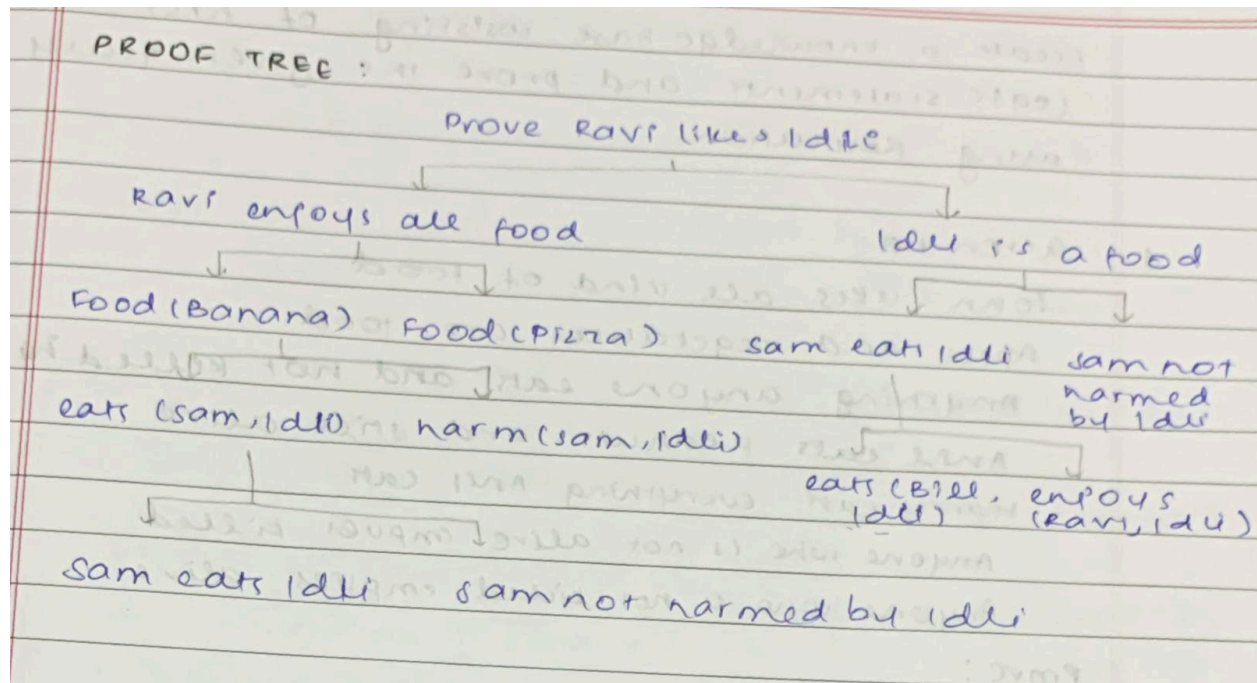 PROOF TREE :
Prove Ravi likes Idli
Ravi enjoys all food
Idli is a food
Food (Banana) Food (Pizza) Sam eats Idli Sam not
harmed
by Idli
eats (Sam, Idli) harm (Sam, Idli)
eats (Bill, enjoys
Idli) (Ravi, Idli)
Sam eats Idli Sam not harmed by Idli